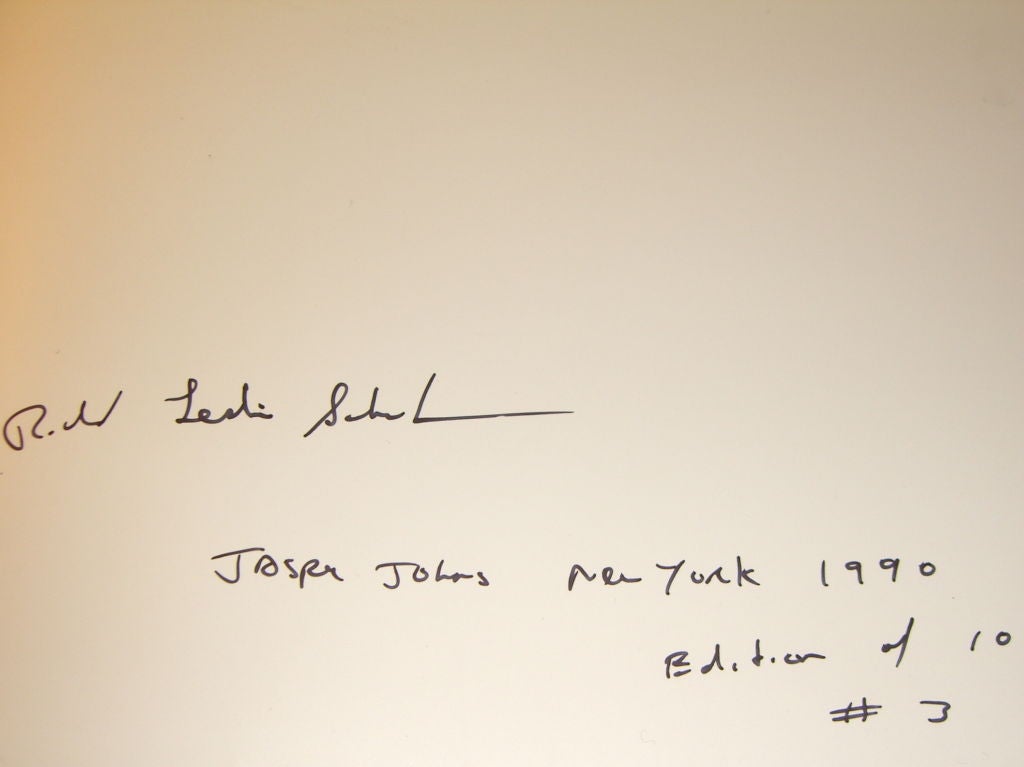 Leslie
Jasper Johns New York 1990
Edition of 10
# 3